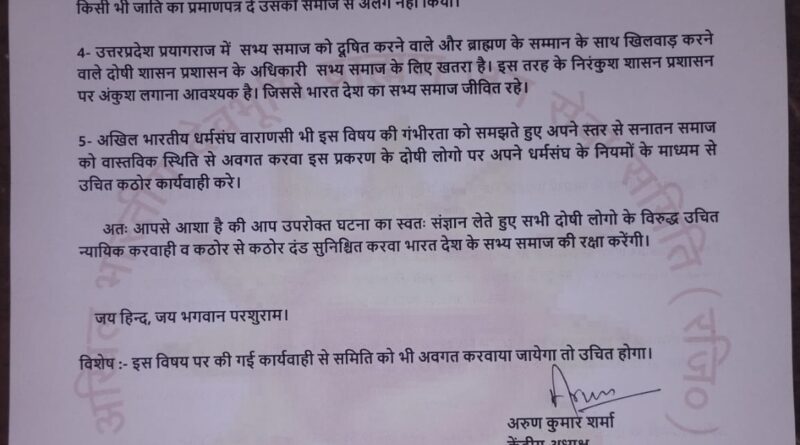 किसी भी जाति का प्रमाणपत्र दे उसको समाज से अलग नहीं किया।
4- उत्तरप्रदेश प्रयागराज में सभ्य समाज को दूषित करने वाले और ब्राह्मण के सम्मान के साथ खिलवाड़ करने
वाले दोषी शासन प्रशासन के अधिकारी सभ्य समाज के लिए खतरा है। इस तरह के निरंकुश शासन प्रशासन
पर अंकुश लगाना आवश्यक है। जिससे भारत देश का सभ्य समाज जीवित रहे।
5- अखिल भारतीय धर्मसंघ वाराणसी भी इस विषय की गंभीरता को समझते हुए अपने स्तर से सनातन समाज
को वास्तविक स्थिति से अवगत करवा इस प्रकरण के दोषी लोगो पर अपने धर्मसंघ के नियमों के माध्यम से
उचित कठोर कार्यवाही करे।
अतः आपसे आशा है की आप उपरोक्त घटना का स्वतः संज्ञान लेते हुए सभी दोषी लोगो के विरुद्ध उचित
न्यायिक करवाही व कठोर से कठोर दंड सुनिश्चित करवा भारत देश के सभ्य समाज की रक्षा करेंगी।
जय हिन्द, जय भगवान परशुराम।
विशेष :- इस विषय पर की गई कार्यवाही से समिति को भी अवगत करवाया जायेगा तो उचित होगा।
Arun
अरुण कुमार शर्मा
केंद्रीय अध्यक्ष